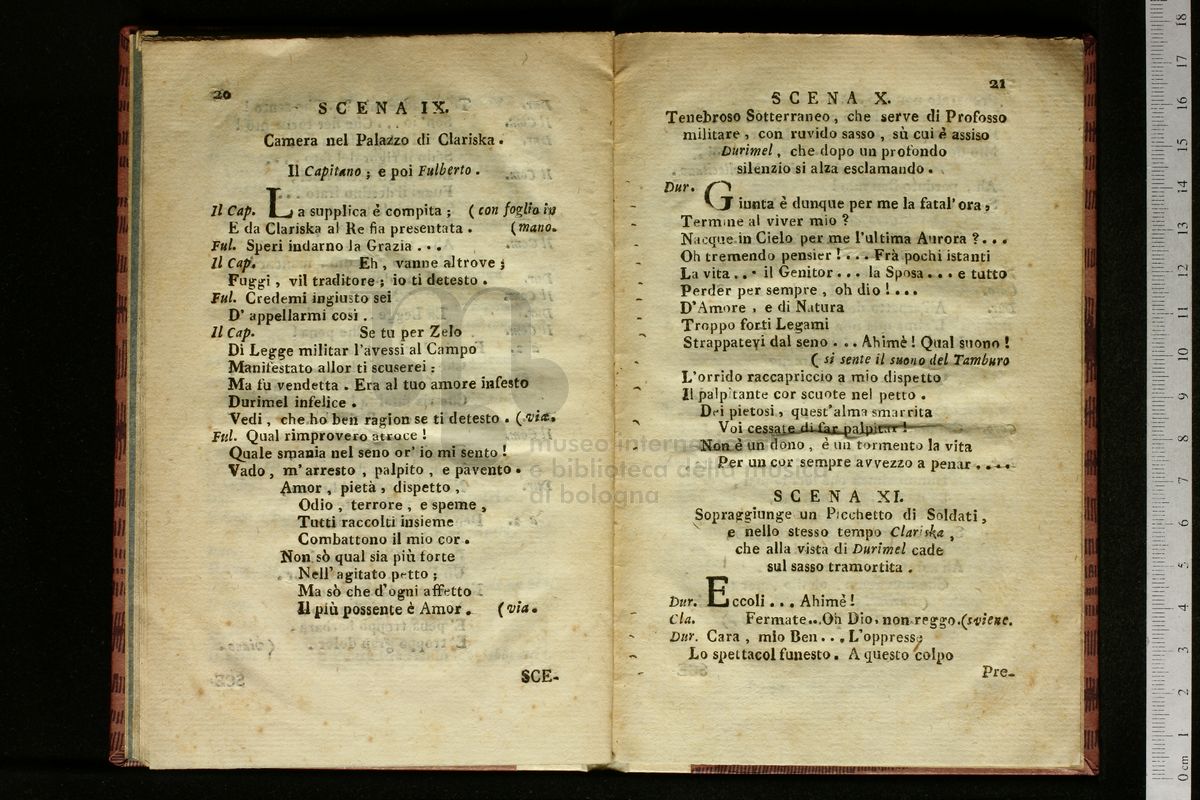 20
SCENA IX.
Camera nel Palazzo di Clariska.
Il Capitano; e poi Fulberto.
Il Cap. La supplica è compita; (con foglio in
E da Clariska al Re fia presentata. (mano.
Ful. Speri indarno la Grazia...
Il Cap. Eh, vanne altrove;
Fuggi, vil traditore; io ti detesto.
Ful. Credemi ingiusto sei
D'appellarmi così.
Il Cap. Se tu per Zelo
Di Legge militar l'avessi al Campo
Manifestato allor ti scuserei:
Ma fu vendetta. Era al tuo amore infesto
Durimel infelice.
Vedi, che ho ben ragion se ti detesto. (via.
Ful. Qual rimprovero atroce!
Quale smania nel seno or' io mi sento!
Vado, m'arresto, palpito, e pavento.
Amor, pietà, dispetto,
Odio, terrore, e speme,
Tutti raccolti insieme
Combattono il mio cor.
Non sò qual sia più forte
Nell'agitato petto;
Ma sò che d'ogni affetto
Il più possente è Amor. (via.
SCE-
21
SCENA X.
Tenebroso Sotterraneo, che serve di Profosso
militare, con ruvido sasso, sù cui è assiso
Durimel, che dopo un profondo
silenzio si alza esclamando.
Dur. Giunta è dunque per me la fatal'ora,
Termine al viver mio?
Nacque in Cielo per me l'ultima Aurora?...
Oh tremendo pensier!... Frà pochi istanti
La vita... il Genitor... la Sposa... e tutto
Perder per sempre, oh dio!...
D'Amore, e di Natura
Troppo forti Legami
Strappatevi dal seno... Ahimè! Qual suono!
(si sente il suono del Tamburo
L'orrido raccapriccio a mio dispetto
Il palpitante cor scuote nel petto.
Dei pietosi, quest'alma smarrita
Voi cessate di far palpitar!
Non è un dono, è un tormento la vita
Per un cor sempre avvezzo a penar....
SCENA XI.
Sopraggiunge un Picchetto di Soldati,
e nello stesso tempo Clariska,
che alla vista di Durimel cade
sul sasso tramortita.
Dur. Eccoli... Ahimè!
Cla. Fermate...Oh Dio, non reggo.(sviene.
Dur. Cara, mio Ben... L'oppresse
Lo spettacol funesto. A questo colpo
Pre-
museo interne
e biblioteca della musica
di bologna
0 cm 1 2 3 4 5 6 7 8 9 10 11 12 13 14 15 16 17 18